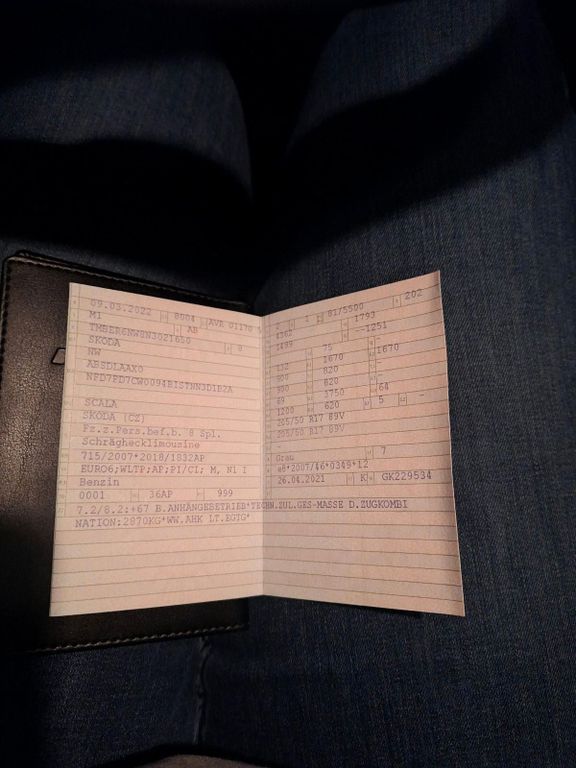 09.03.2022 8004 AVR 01170 5
M1 AB
TMBER6NW8N3021650 9
SKODA
NW
ABSDLAAX0
NFD7FD7CW0094BISTNN3D1B2A
SCALA
SKODA (CZ)
Fz.z.Pers.bef.b. 8 Spl.
Schräghecklimousine
715/2007*2018/1832AP
EURO6;WLTP;AP;PI/CI; M, N1 I
Benzin
0001 36AP 999
7.2/8.2:+67 B.ANHÄNGEBETRIEB*TECHN.ZUL.GES-MASSE D.ZUGKOMBI
NATION:2870KG*WW.AHK LT.EGTG*
2 1 81/5500 202
4362 1793
1489 -1251
132 75
1670 1670
820
820
69 3750 64
1200 620 5 -
205/50 R17 89V
205/50 R17 89V
Grau 7
e8*2007/46*0349*12
26.04.2021 K GK229534